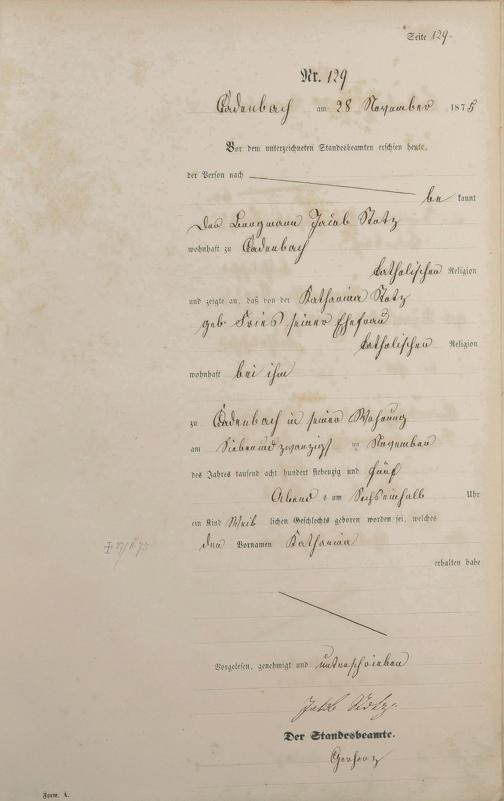 Seite 129.
Nr. 129
Cadenbach am 28 November 1875
Vor dem unterzeichneten Standesbeamten erschien heute,
der Person nach
be kannt
der Bergmann Jacob Stotz
wohnhaft zu Cadenbach
katholischer Religion
und zeigte an, daß von der Katharina Stotz
geb Fries seiner Ehefrau
katholischen Religion
wohnhaft bei ihm
zu Cadenbach in seiner Wohnung
am Siebenundzwanzigst en November
des Jahres tausend acht hundert siebenzig und fünf
Abend s um Sechseinhalb Uhr
ein Kind Weib lichen Geschlechts geboren worden sei, welches
den Vornamen Katharina
erhalten habe
Vorgelesen, genehmigt und unterschrieben
Jakob Stotz
Der Standesbeamte.
Form. A.